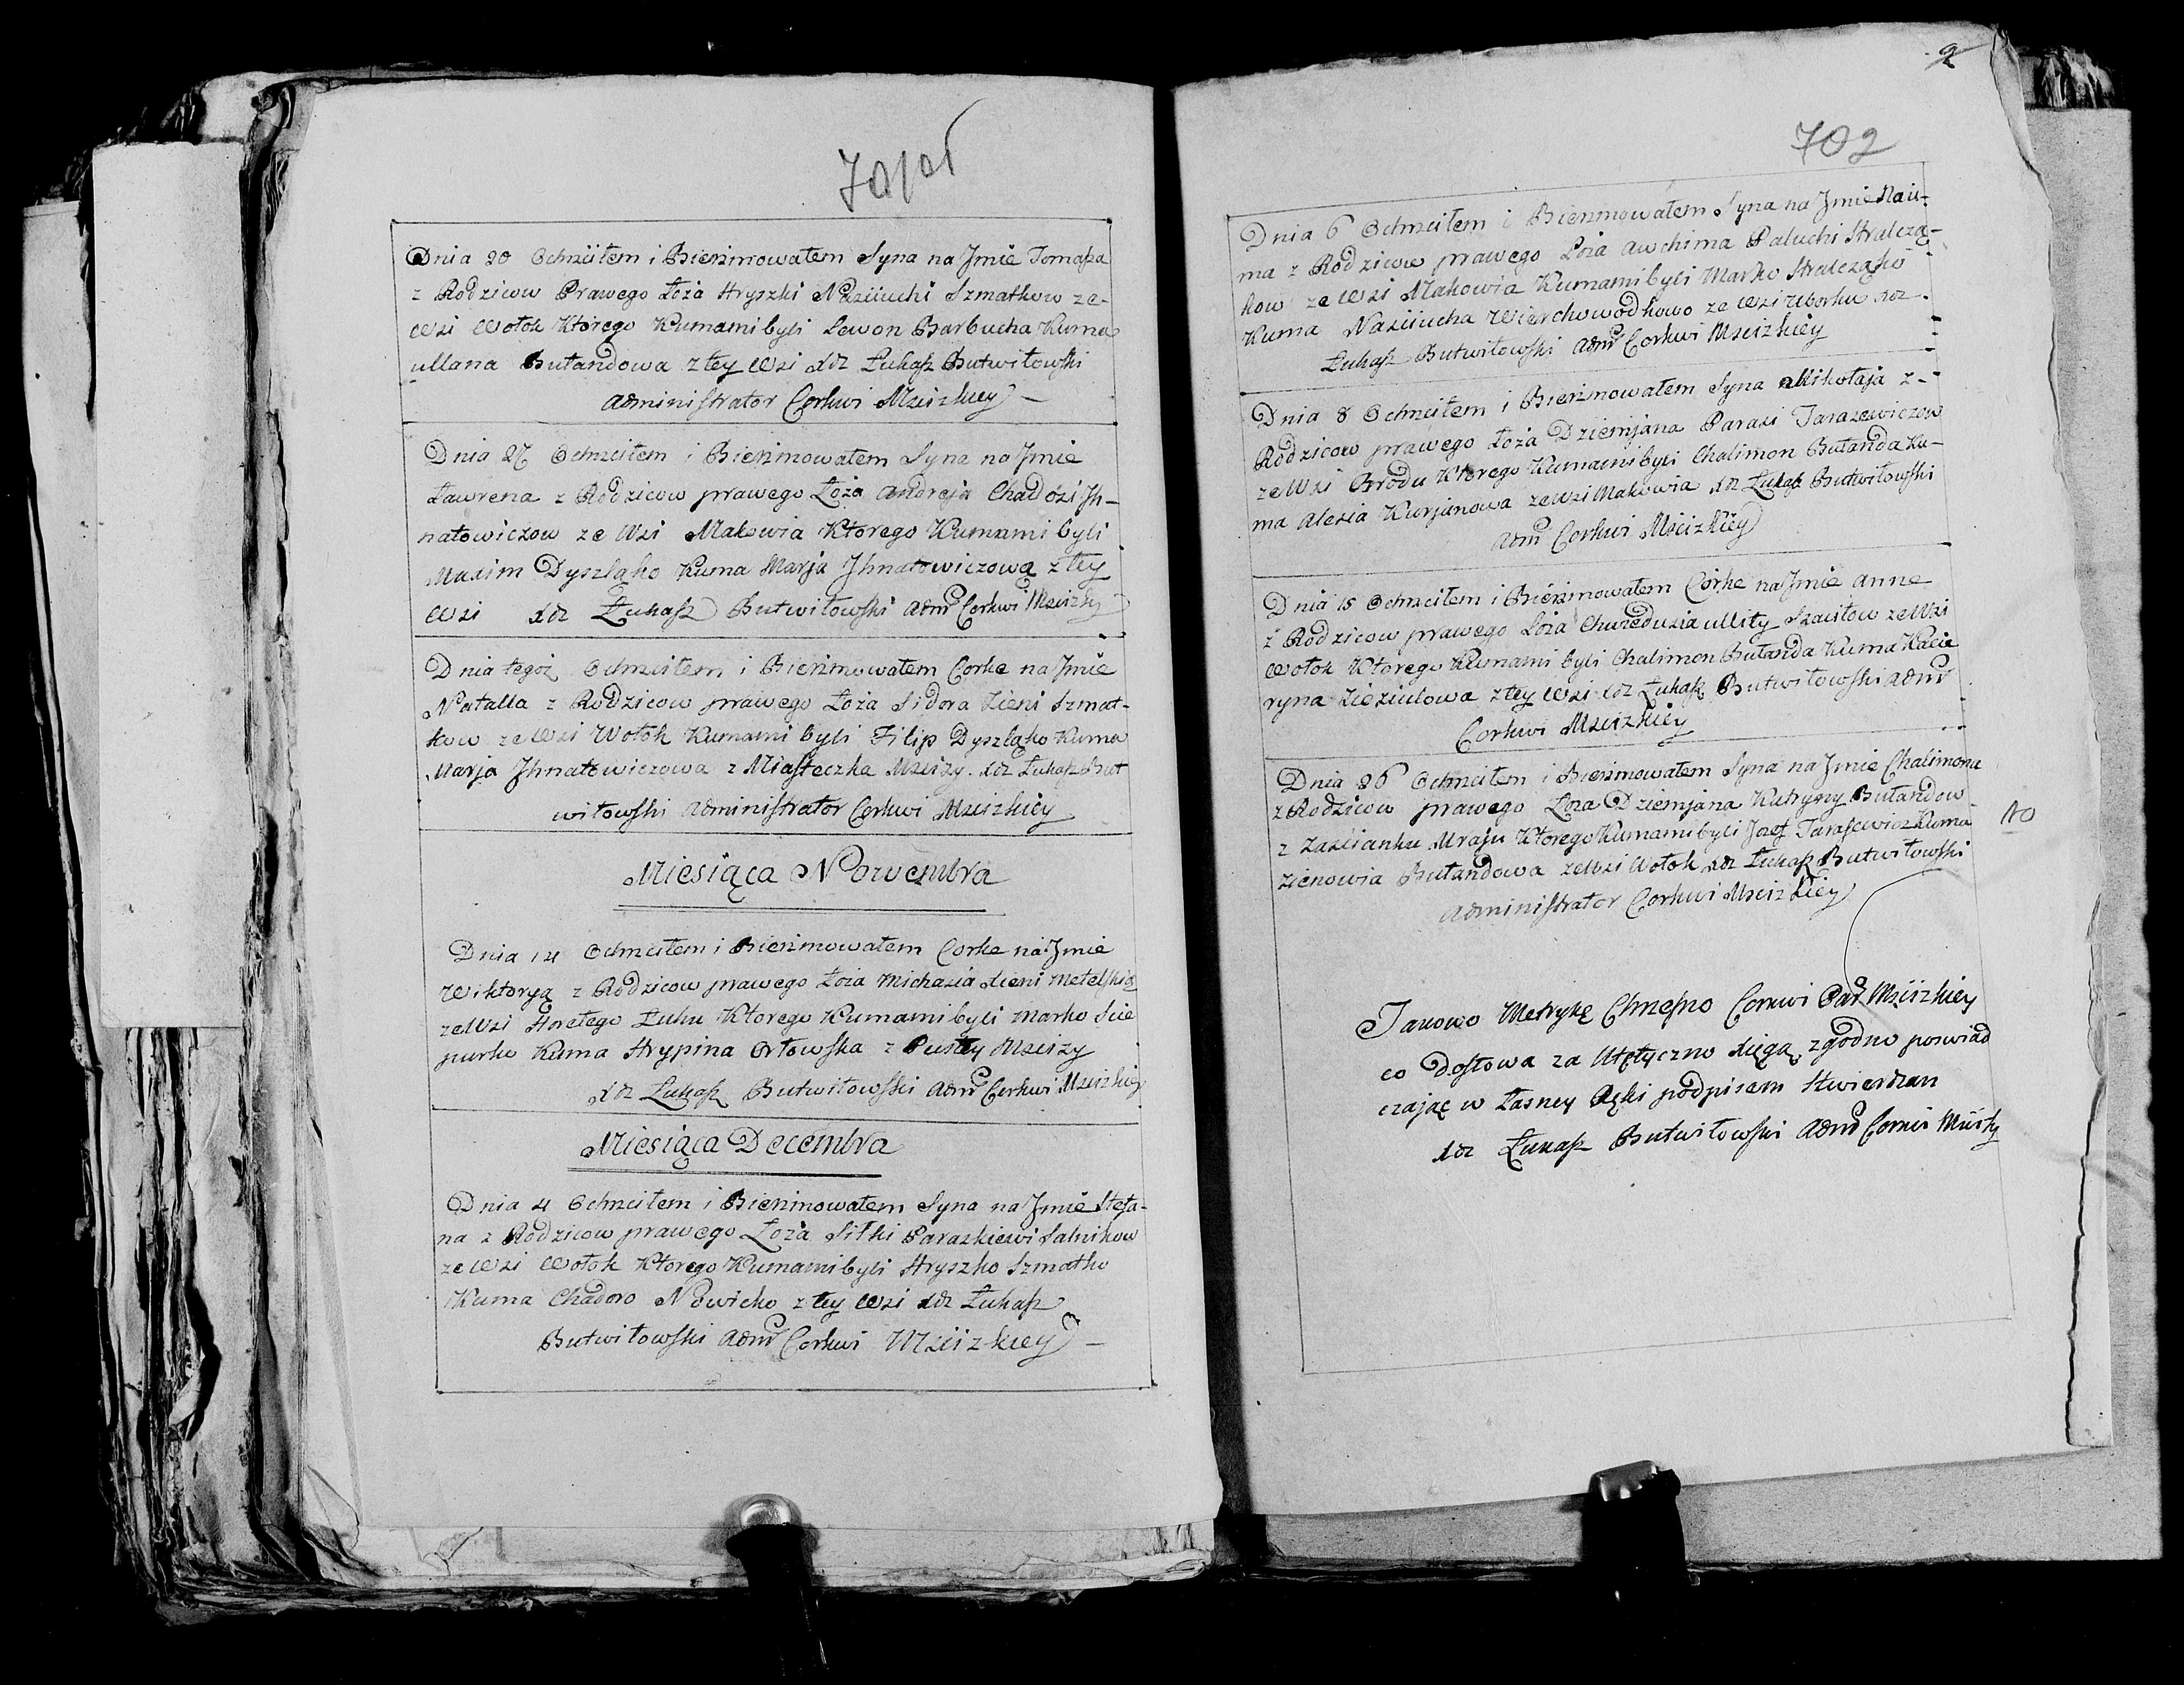 Dnia 20 Ochrzciłem i Bierzmowałem Syna na Jmie Tomasza
z Rodzicow Prawego Łoża Hryszki Naściuchi Szmatkow ze-
Wsi Wołok Ktorego Kumami byli Lewon Barbucha Kuma
ullana Bułandowa z tey Wsi Xdz Łukasz Butwiłowski
Administrator Cerkwi Msciżkiey
Dnia 27 Ochrzciłem i Bierzmowałem Syna na Jmie
Ławrena z Rodzicow prawego Łoża Andreja Chadósi Jh-
natowiczow ze Wsi Makowia Ktorego Kumami byli
Maxim Dyszlako Kuma Marja Jhnatowiczowa z tey
Wsi Xdz Łukasz Butwiłowski Admr Cerkwi Msciżkiey
Dnia tegoż Ochrzciłem i Bierzmowałem Corke na Jmie
Natalla z Rodzicow prawego Łoża Sidora Zieni Szmat-
kow ze Wsi Wołok Kumami byli Filip Dyszlako Kuma
Marja Jhnatowiczowa z Miasteczka Msciży Xdz Łukasz But
wiłowski Administrator Cerkwi Msciżkiey
Miesiąca Nowembra
Dnia 14 Ochrzciłem i Bierzmowałem Corke na Jmie
Wiktoryą z Rodzicow prawego Łoża Michasia Xieni Metelskich
ze Wsi Horełego Łuhu Ktorego Kumami byli Marko Scie
purko Kuma Hrypina Orłowska z Pustey Msciży
Xdz Łukasz Butwiłowski Admr Cerkwi Msciżkiey
Miesiąca Decembra
Dnia 4 Ochrzciłem i Bierzmowałem Syna na Jmie Stefa-
na z Rodzicow prawego Łoża Siłki Paraskiewi Salnikow
ze Wsi Wołok Ktorego Kumami byli Hryszko Szmatko
Kuma Chadora Nowicko z tey Wsi Xdz Łukasz
Butwiłowski Admr Cerkwi Msciżkiey
2
702
Dnia 6 Ochrzciłem i Bierzmowałem Syna na Jmie Nau-
ma z Rodzicow prawego Łoża Awchima Paluchi Stralcza-
kow ze Wsi Makowia Kumami byli Marko Stralczako
Kuma Naściucha Wierchowodkowo ze Wsi Uborku Xdz
Łukasz Butwiłowski Admr Cerkwi Msciżkiey
Dnia 8 Ochrzciłem i Bierzmowałem Syna Mikołaja z-
Rodzicow prawego Łoża Dziemjana Parasi Tarasewiczow
ze Wsi Brodu Ktorego Kumami byli Chalimon Bułanda Ku-
ma Alesia Kurjanowa ze Wsi Makowia Xdz Łukasz Butwiłowski
Admr Cerkwi Msciżkiey
Dnia 15 Ochrzciłem i Bierzmowałem Córke na Jmie Anne
z Rodzicow prawego Łoża Chwedusia ullity Szaiłow ze Wsi
Wołok Ktorego Kumami byli Chalimon Bułanda Kuma Kacie
ryna Zieziulowa z tey Wsi Xdz Łukasz Butwiłowski Admr
Cerkwi Msciżkiey
Dnia 26 Ochrzciłem i Bierzmowałem Syna na Jmie Chalimona
z Rodzicow prawego Łoża Dziemjana Katryny Bułandow
z Zaścianku Uraju Ktorego Kumami byli Jozef Tarasewicz Kuma
Zienowia Bułandowa ze Wsi Wołok Xdz Łukasz Butwiłowski
Administrator Cerkwi Msciżkiey
Takowo Metrykę Chrzesno Cerkwi Par Msciżkiey
co Dosłowa za Utętyczno Xięgą zgodno poswiad
czając w Łasney Ręki podpisem Stwierdzan
Xdz Łukasz Butwiłowski Admr Cerkwi Msciżkiey